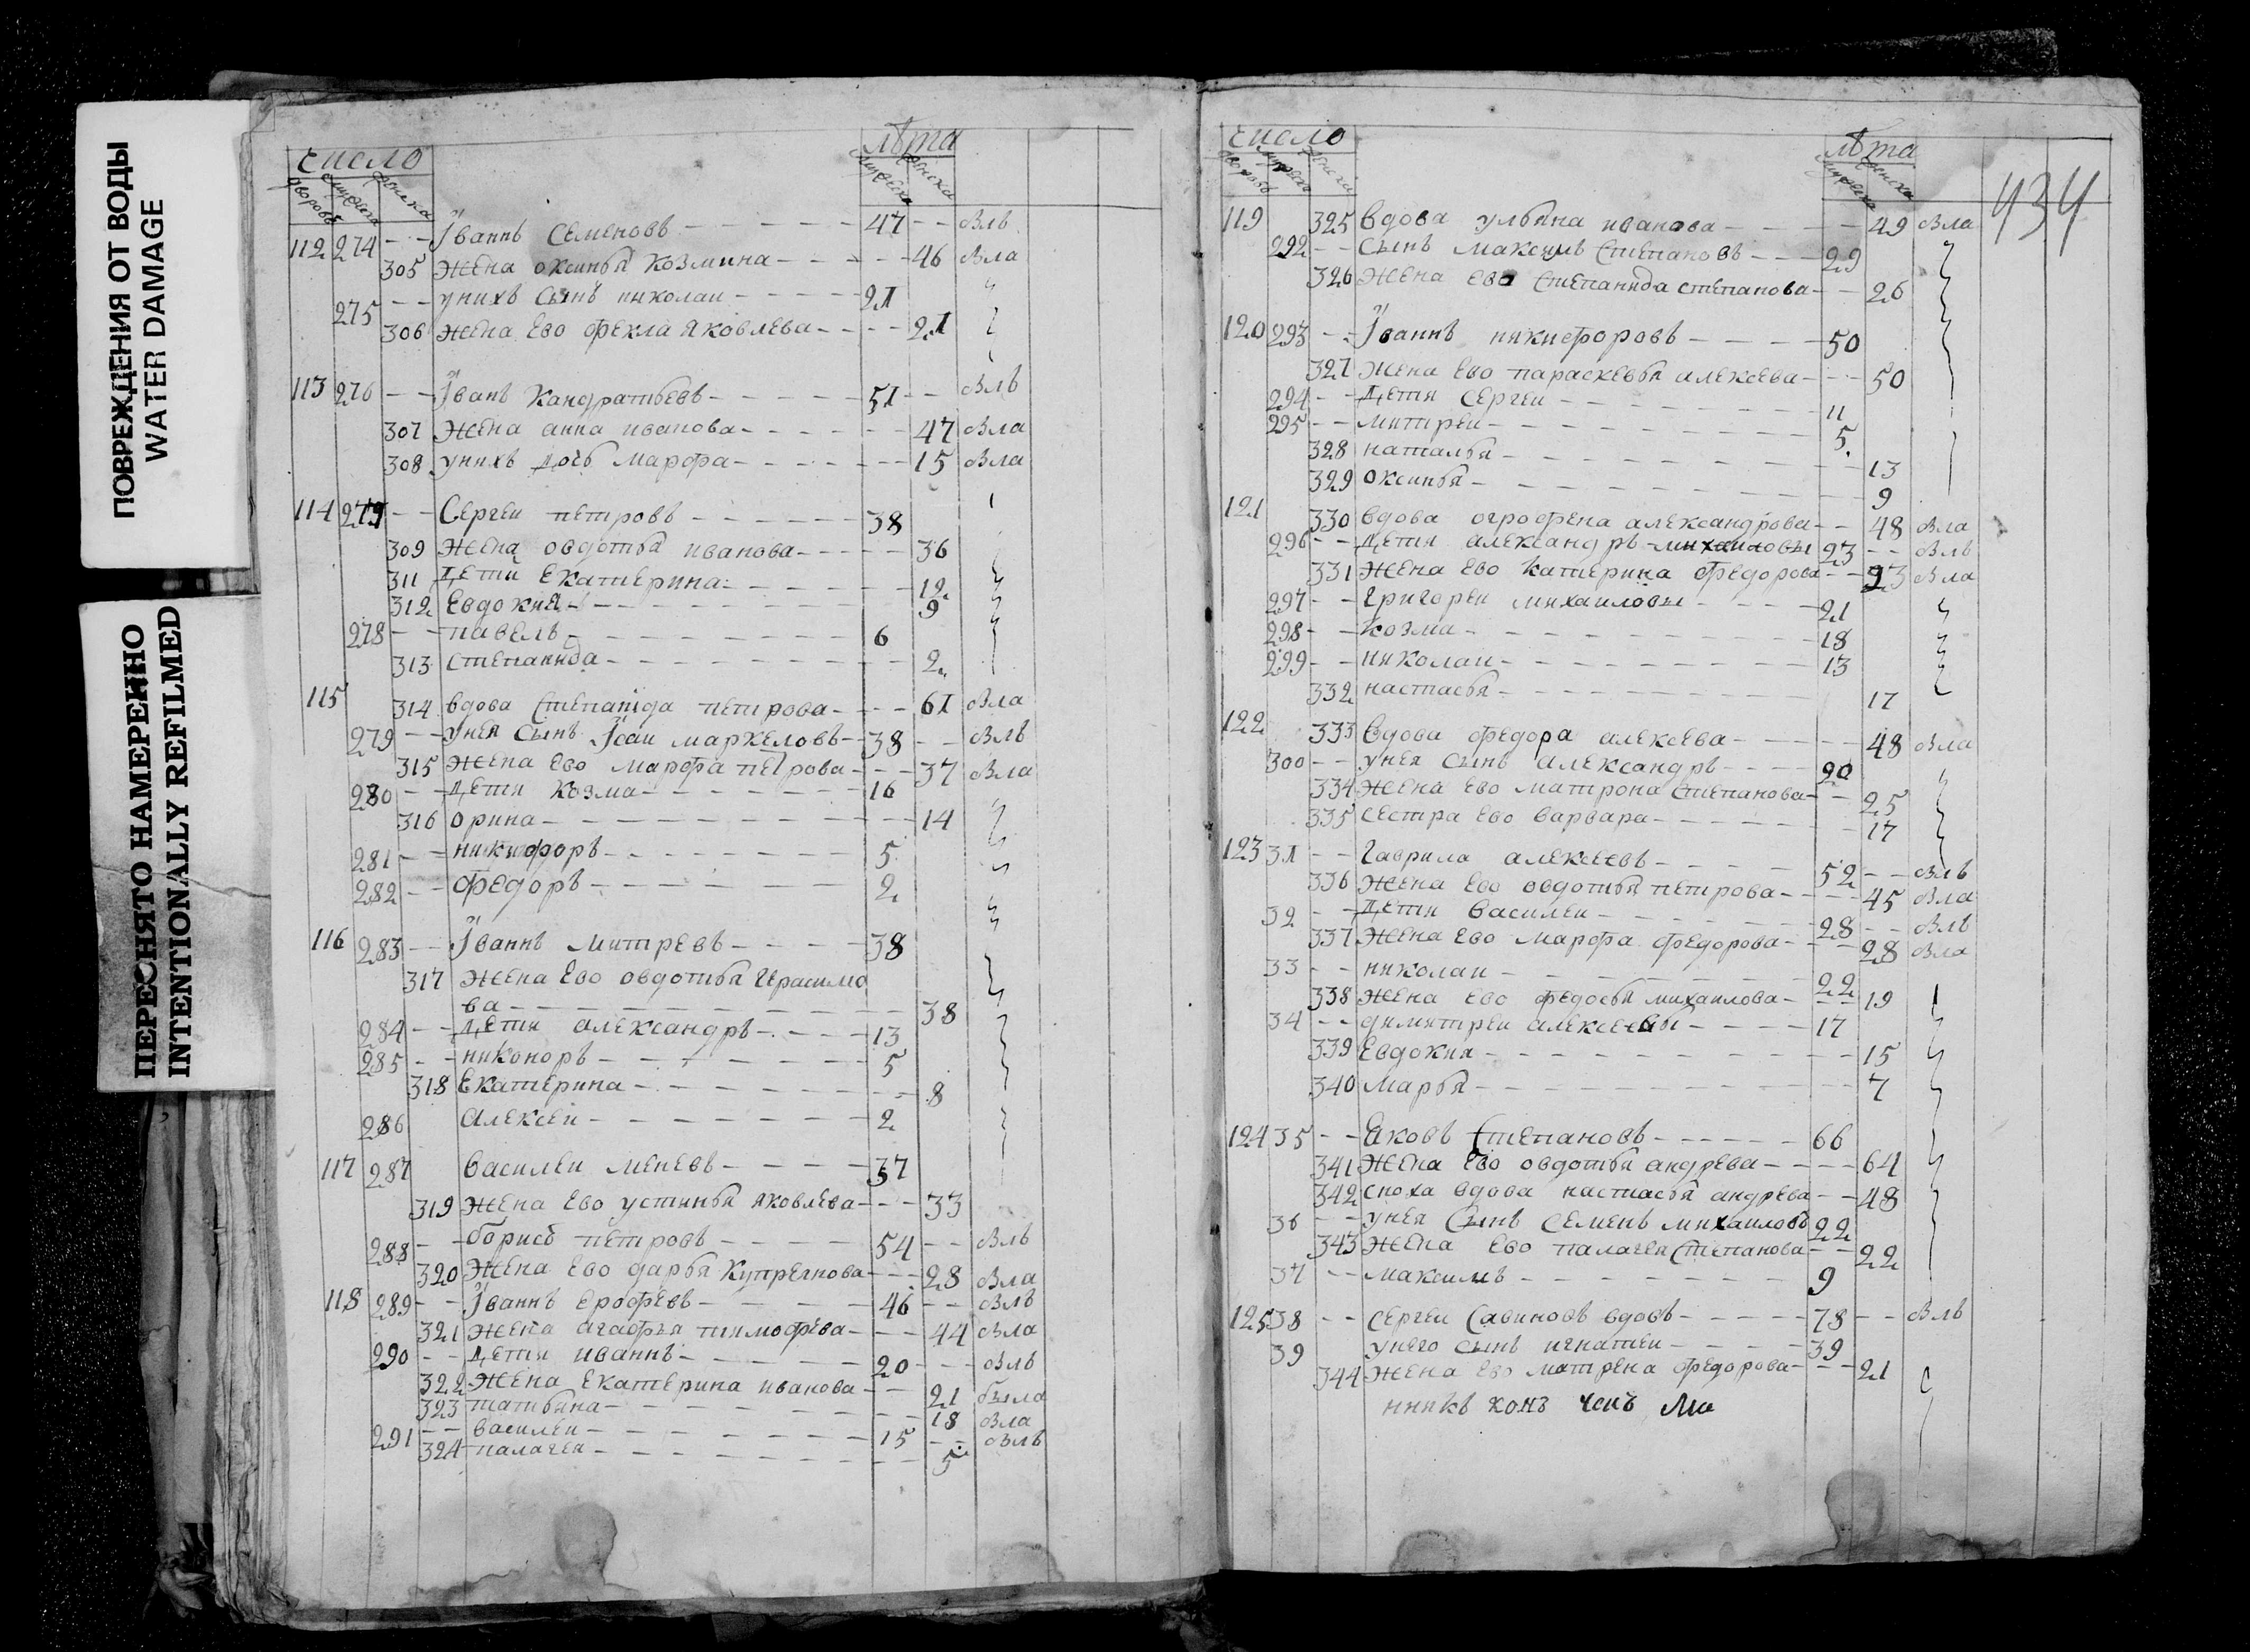 ПОВРЕЖДЕНИЯ ОТ ВОДЫ
WATER DAMAGE
ПЕРЕСНЯТО НАМЕРЕННО
INTENTIONALLY REFILMED
число лѣта
дворовъ мужеска женска мужеска женска
112 274 -- Їваннъ Семеновъ 47 -- былъ
305 жена оксинья Козмина 46 была
275 -- унихъ сынъ николаи 21
306 жена ево фекла яковлева 21
113 276 -- Їванъ Кандратьевъ 51 -- былъ
307 жена анна иванова 47 была
308 унихъ дочь марфа 15 была
114 277 -- Сергеи петровъ 38
309 жена овдотья иванова 36
311 дети екатерина 12
312 Евдокия 9
278 -- павелъ 6
313 степанида 2
115 314 вдова Степаніда петрова 61 была
279 -- унея сынъ Їсаи маркеловъ 38 -- былъ
315 жена ево марфа петрова 37 была
280 -- дети козма 16
316 орина 14
281 -- никифоръ 5
282 -- федоръ 2
116 283 -- Їваннъ митревъ 38
317 жена ево овдотья Герасимо
ва 38
284 -- дети александръ 13
285 -- никоноръ 5
318 Екатерина 8
286 алексеи 2
117 287 василеи 37
319 жена ево устинья яковлева 33
288 -- борисъ петровъ 54 -- былъ
320 жена ево дарья Купреянова 28 была
118 289 -- Їваннъ ерофѣевъ 46 -- былъ
321 жена агафья тимофѣва 44 была
290 -- дети иваннъ 20 -- былъ
322 жена екатерина иванова 21 была
323 татьяна 18 была
291 -- василеи 15 -- былъ
324 палагея 5
434
число лѣта
дворовъ мужеска женска мужеска женска
119 325 вдова ульяна иванова 49 была
292 -- сынъ максимъ степановъ 29
326 жена ево степанида степанова 26
120 293 -- Їваннъ никифоровъ 50
327 жена ево параскевья алексева 50
294 -- дети сергеи 11
295 -- митреи 5
328 наталья 13
329 оксинья 9
121 330 вдова огрофена александрова 48 была
296 -- дети александръ михаиловы 23 -- былъ
331 жена ево катерина федорова 23 была
297 -- григореи михаиловы 21
298 -- козма 18
299 -- николаи 13
332 настасья 17
122 333 вдова федора алексева 48 была
300 -- унея сынъ александръ 20
334 жена ево матрона степанова 25
335 сестра ево варвара 17
123 31 -- гаврила алексеевъ 52 -- былъ
336 жена ево овдотья петрова 45 была
32 -- дети василеи 28 -- былъ
337 жена ево марфа федорова 28 была
33 -- николаи 22
338 жена ево федосья михаилова 19
34 -- димитреи алексеевы 17
339 Евдокия 15
340 марья 7
124 35 -- Яковъ степановъ 66
341 жена ево овдотья андрева 64
342 сноха вдова настасья андрева 48
36 -- унея сынъ семенъ михаиловъ 22
343 жена ево палагея степанова 22
37 -- максимъ 9
125 38 -- сергеи савиновъ вдовъ 78 -- былъ
39 унего сынъ игнатеи 39
344 жена ево матрена федорова 21